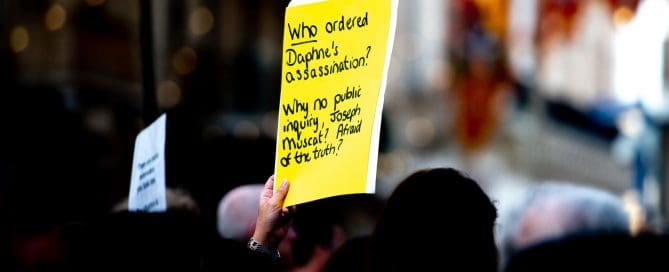 Who ordered
Daphne's
assassination?
Why no public
inquiry, Joseph
Muscat? Afraid
of the truth?